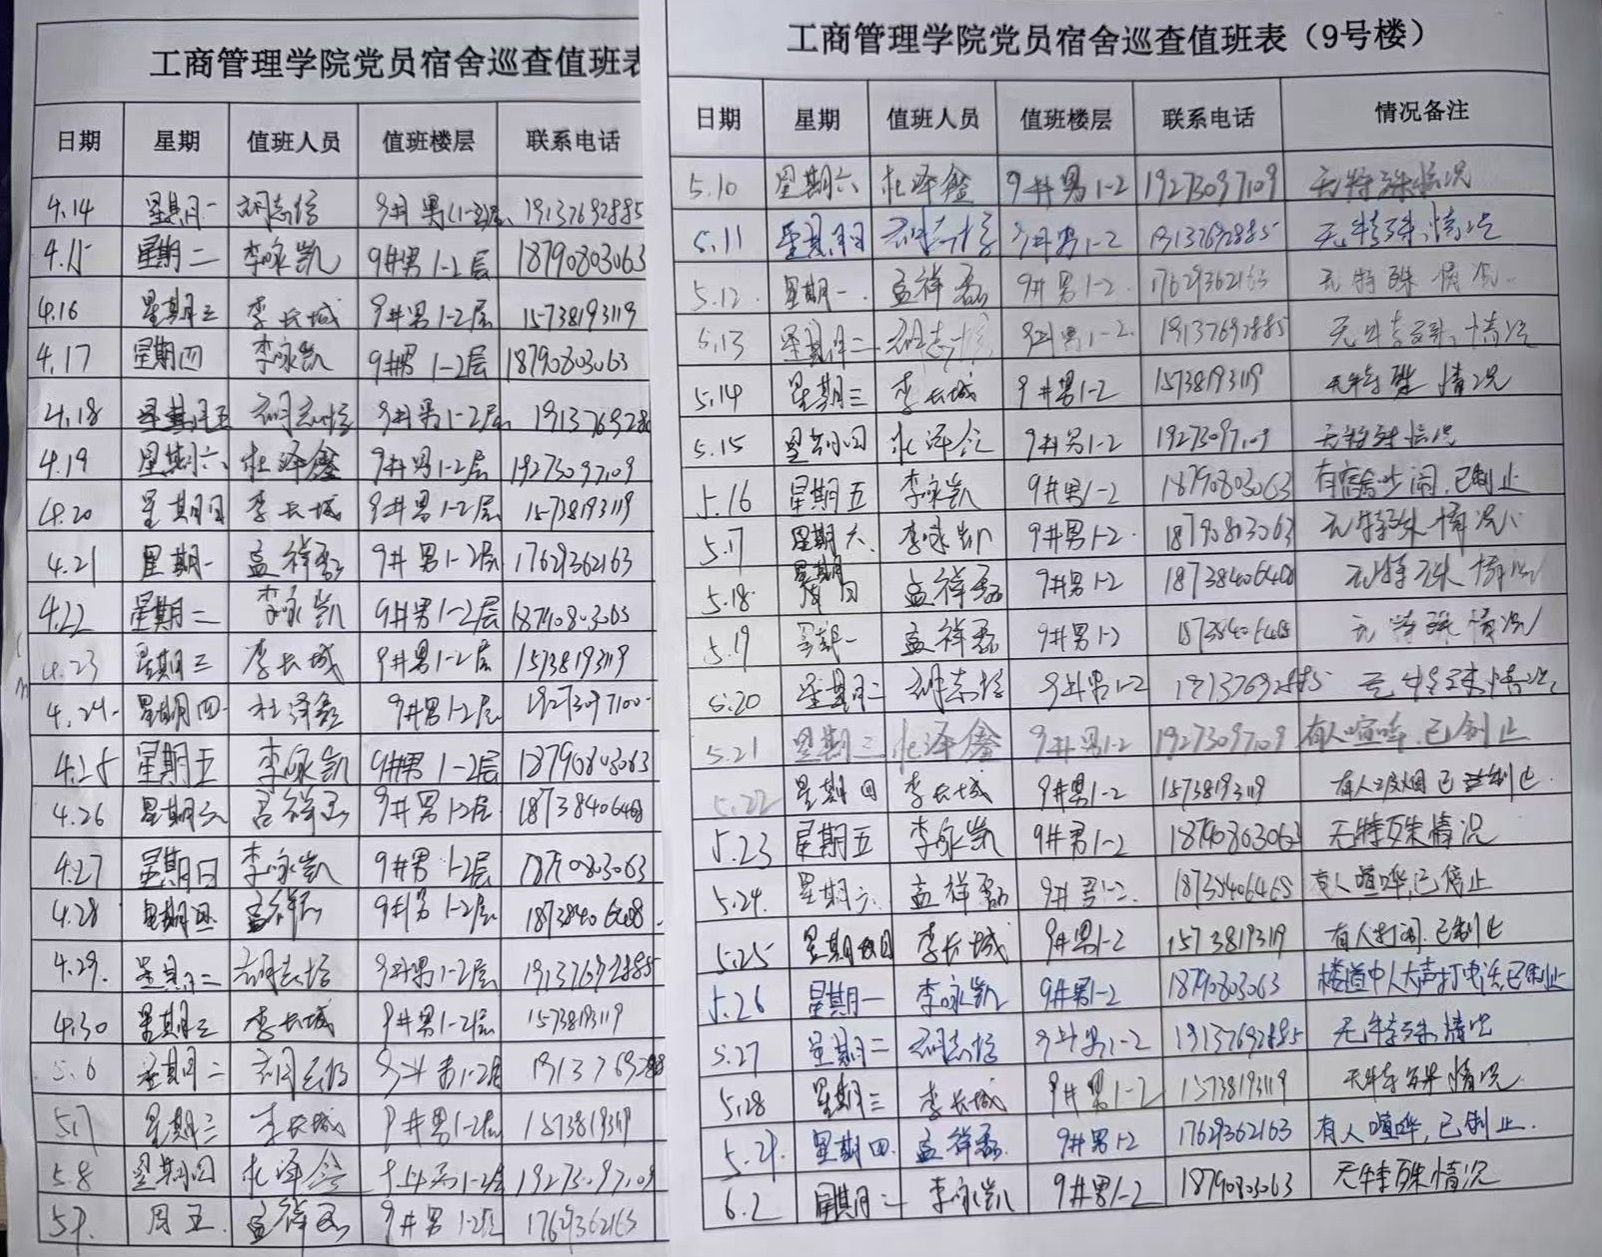 工商管理学院党员宿舍巡查值班表
日期 星期 值班人员 值班楼层 联系电话
4.14 星期一 胡志信 9#男1-2层 19137692885
4.15 星期二 李咏凯 9#男1-2层 18790803063
4.16 星期三 李长城 9#男1-2层 15738193119
4.17 星期四 李咏凯 9#男1-2层 18790803063
4.18 星期五 胡志信 9#男1-2层 191376928
4.19 星期六 杜泽鑫 9#男1-2层 19273097109
4.20 星期日 李长城 9#男1-2层 15738193119
4.21 星期一 孟祥磊 9#男1-2层 17629362163
4.22 星期二 李咏凯 9#男1-2层 18790803063
4.23 星期三 李长城 9#男1-2层 15738193119
4.24 星期四 杜泽鑫 9#男1-2层
4.25 星期五 李咏凯 9#男1-2层 18790803063
4.26 星期六 9#男1-2层 18738406408
4.27 星期日 李咏凯 9#男1-2层 18790803063
4.28 孟祥磊 9#男1-2层 18738406408
4.29. 星期二 胡志信 9#男1-2层 19137692885
4.30 星期三 李长城 9#男1-2层 15738193119
5.6 星期二 胡志信 9#男1-2层
5.7 星期三 李长城 9#男1-2层 15738193119
5.8 星期四 杜泽鑫 9#男1-2层 19273097109
5.9. 周五. 孟祥磊 9#男1-2层 17629362163
工商管理学院党员宿舍巡查值班表（9号楼）
日期 星期 值班人员 值班楼层 联系电话 情况备注
5.10 星期六 杜泽鑫 9#男1-2 19273097109 无特殊情况
5.11 星期日 胡志信 9#男1-2 19137692885 无特殊情况
5.12. 星期一. 孟祥磊 9#男1-2. 17629362163 无特殊情况.
5.13 星期二 胡志信 9#男1-2 19137692885 无特殊情况
5.14 星期三 李长城 9#男1-2 15738193119 无特殊情况
5.15 星期四 杜泽鑫 9#男1-2 19273097109 无特殊情况
5.16 星期五 李咏凯 9#男1-2 18790803063 有宿舍吵闹,已制止
5.17 星期六 李咏凯 9#男1-2 18790803063 无特殊情况
5.18. 星期日 孟祥磊 9#男1-2 18738406408 无特殊情况
5.19 星期一 孟祥磊 9#男1-2 18738406408 无特殊情况
5.20 星期二 胡志信 9#男1-2 19137692885 无特殊情况
5.21 星期三 杜泽鑫 9#男1-2 19273097109 有人喧哗.已制止
5.22 星期四 李长城 9#男1-2 15738193119 有人吸烟已制止.
5.23 星期五 李咏凯 9#男1-2 18790803063 无特殊情况
5.24. 星期六. 孟祥磊 9#男1-2. 18738406408 有人喧哗,已停止
5.25 星期日 李长城 9#男1-2 15738193119 有人打闹.已制止
5.26 星期一 李咏凯 9#男1-2 18790803063 楼道中人大声打电话,已制止
5.27 星期二 胡志信 9#男1-2 19137692885 无特殊情况
5.28 星期三 李长城 9#男1-2 15738193119 无特殊情况.
5.29. 星期四. 孟祥磊. 9#男1-2 17629362163 有人喧哗,已制止.
6.2 星期 李咏凯 9#男1-2 18790803063 无特殊情况